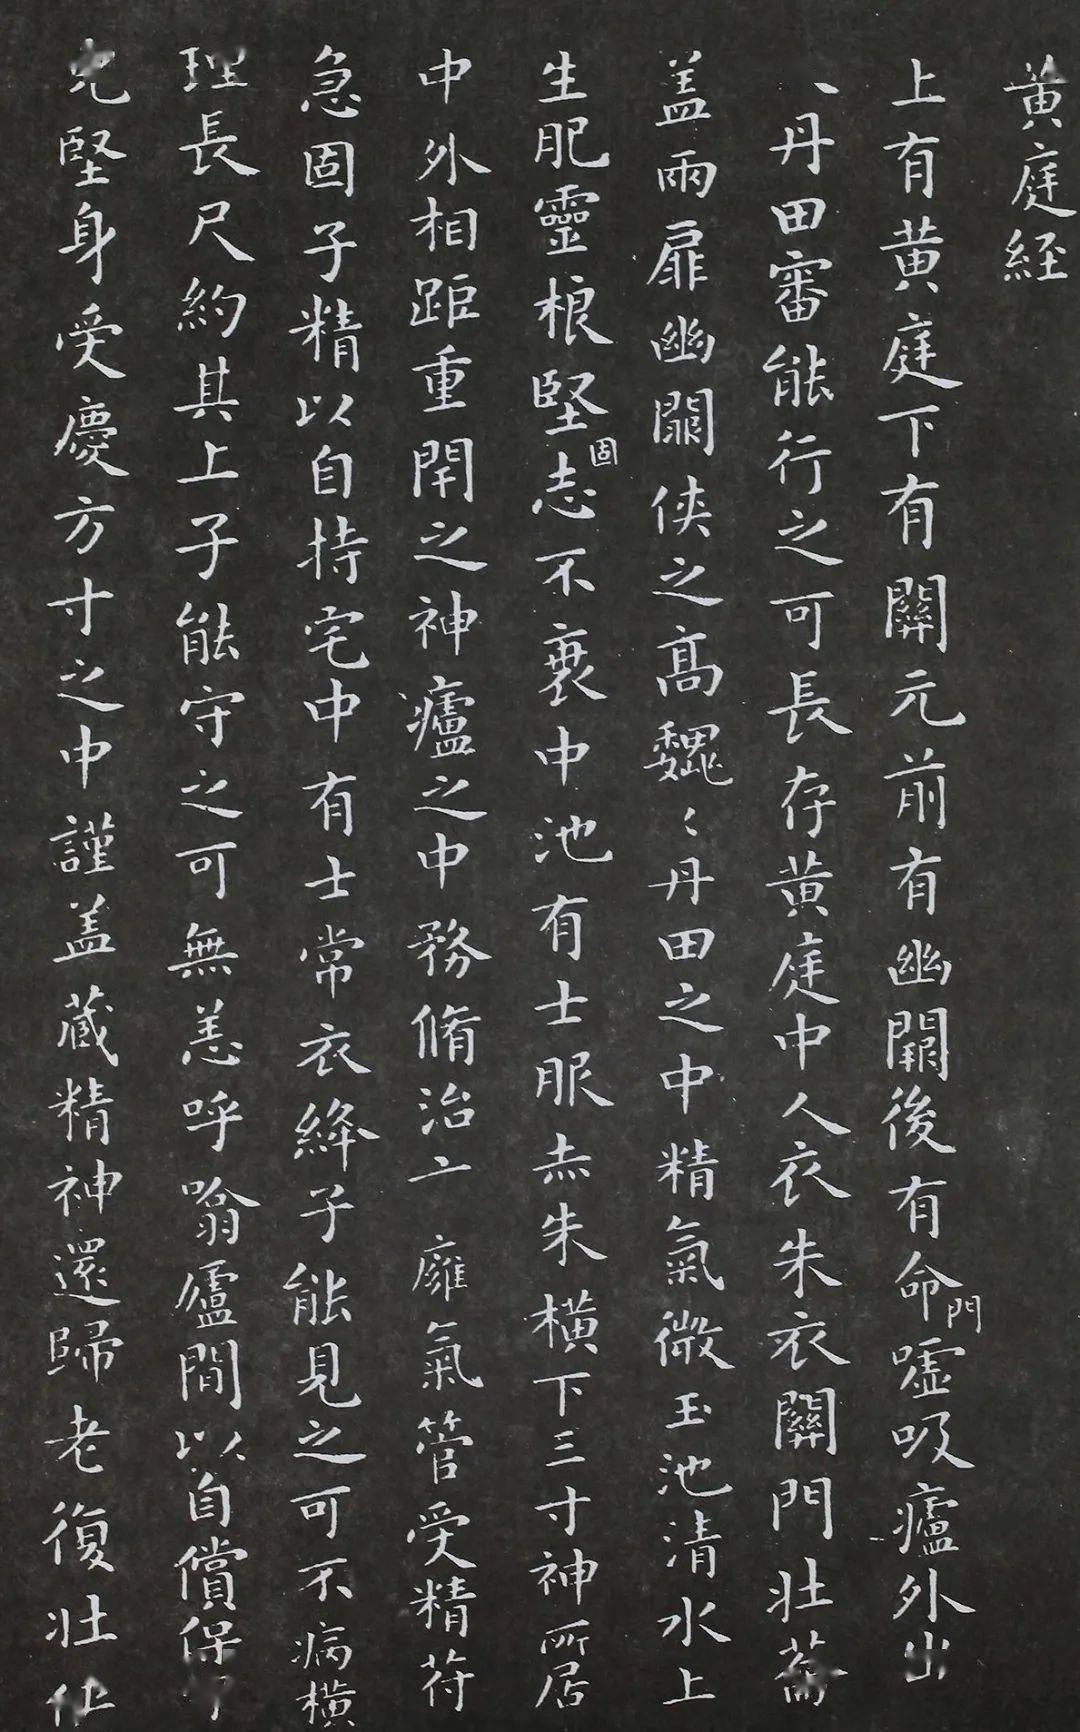 黄庭經
上有黄庭下有關元前有幽闕後有命門嘘吸廬外出
入丹田審能行之可長存黄庭中人衣朱衣關門壯籥
盖兩扉幽闕俠之高魏〻丹田之中精氣微玉池清水上
生肥靈根堅固志不衰中池有士服赤朱横下三寸神所居
中外相距重閇之神廬之中務脩治玄廱氣管受精符
急固子精以自持宅中有士常衣絳子能見之可不病横
理長尺約其上子能守之可無恙呼噏廬間以自償保守
完堅身受慶方寸之中謹盖藏精神還歸老復壯